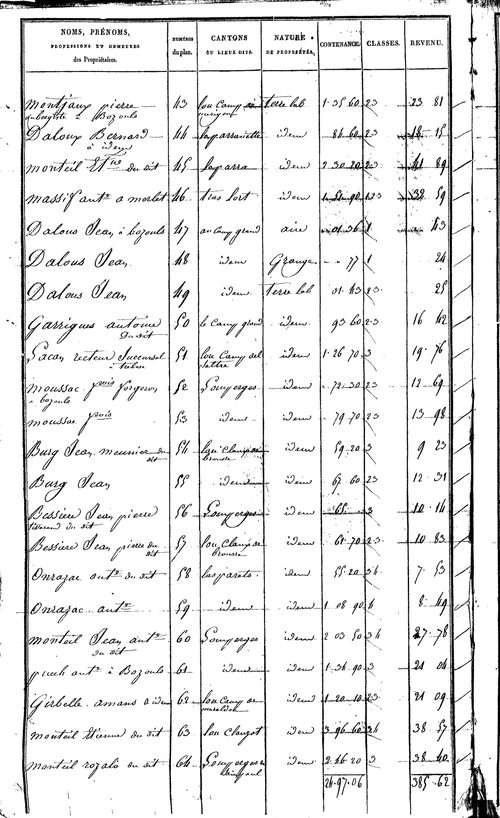 NOMS, PRÉNOMS, PROFESSIONS ET DEMEURES des Propriétaires. NUMÉROS du plan. CANTONS OU LIEUX DITS. NATURE DE PROPRIÉTÉS. CONTENANCE. CLASSES. REVENU.
Montjaux pierre à Bozouls 43 lou Camp terre lab 1.35 60 23 23 81
Daloux Bernard à idem 44 laparranette idem 84 60 23 18 15
monteil Et.ne du dit 45 laparra idem 2 30 20 23 41 89
massif ant.e a morlet 46 tras lort idem 1 51 90 123 38 59
Dalous Jean à bozouls 47 au Camp grand aire 01 36 1 43
Dalous Jean 48 idem Grange 77 1 24
Dalous Jean 49 idem terre lab 01 83 23 25
Garrigues antoine du dit 50 le Camp grand idem 93 60 23 16 42
Lacan recteur Succursal 51 lou Camp del idem 1 26 70 3 19 76
moussac f.ois forgeron à bozouls 52 Lomperges idem 72 30 23 12 69
moussac f.ois 53 idem idem 79 70 23 13 98
Burg Jean meunier du dit 54 idem 59 20 3 9 23
Burg Jean 55 idem idem 67 60 23 12 31
Bessiere Jean pierre tisserand du dit 56 Lompergers idem 65 3 10 14
Bessiere Jean pierre du dit 57 idem 61 70 23 10 83
Onrazac ant.e du dit 58 las parets idem 55 20 34 7 53
Onrazac ant.e 59 idem idem 1 08 90 4 8 49
monteil Jean ant.e du dit 60 Lompergies idem 2 03 50 34 27 78
puech ant.e à Bozouls 61 idem idem 1 34 90 3 21 04
Girbelle amans a idem 62 lou Camp idem 1 20 10 23 21 09
monteil Etienne du dit 63 lou Clauzot idem 3 96 60 34 38 57
monteil rozalis du dit 64 Lompergies idem 2 46 20 3 38 40
26.97.06 385.62